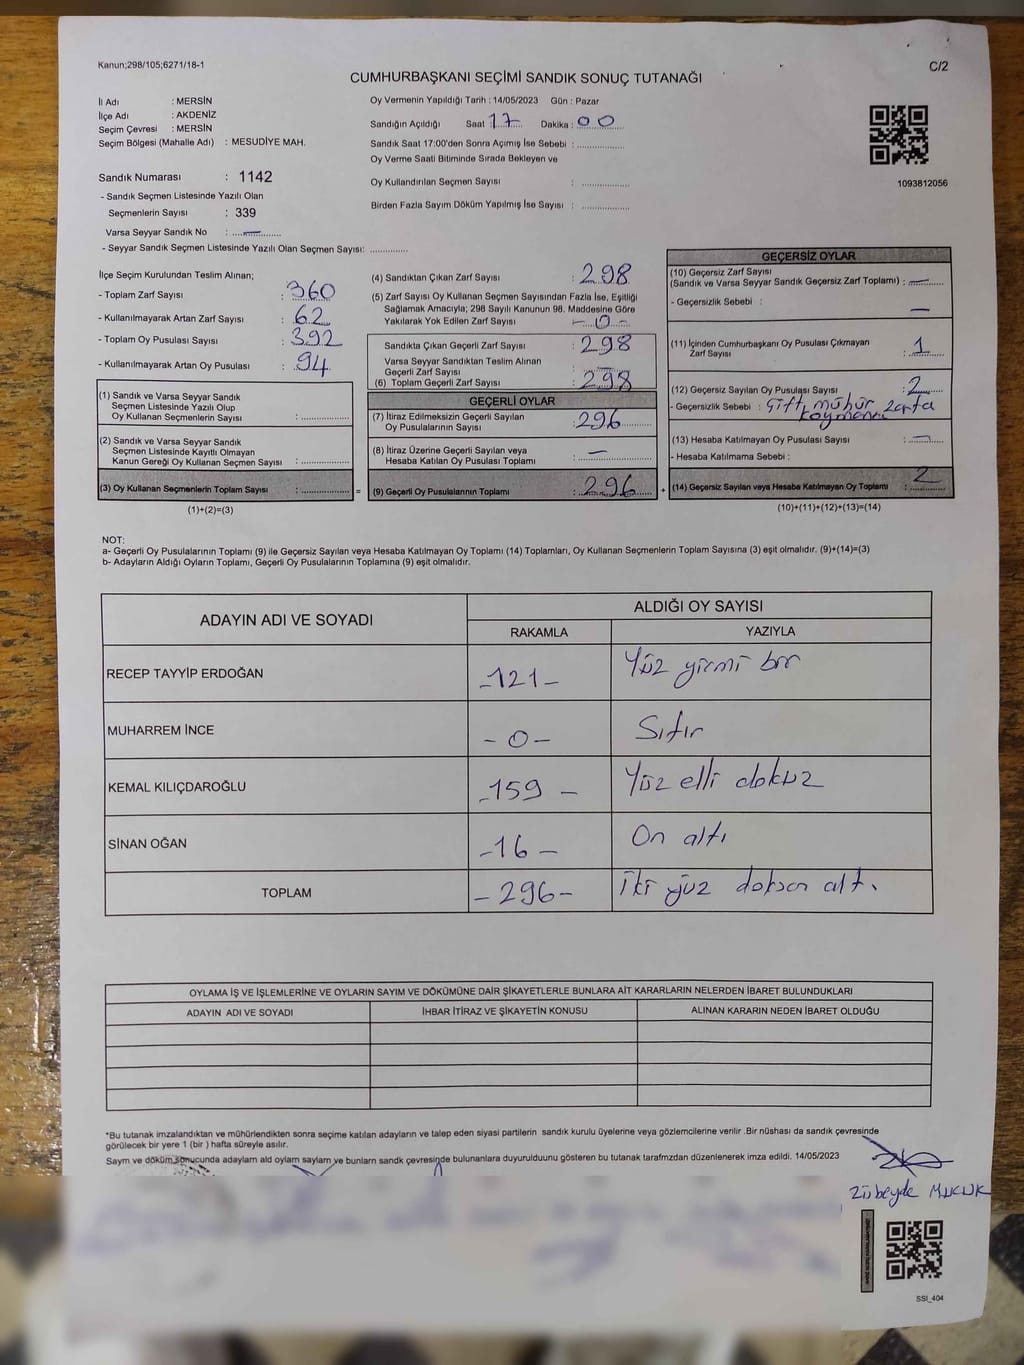 Kanun;298/105;6271/18-1
C/2
CUMHURBAŞKANI SEÇİMİ SANDIK SONUÇ TUTANAĞI
İl Adı : MERSİN
İlçe Adı : AKDENİZ
Seçim Çevresi : MERSİN
Seçim Bölgesi (Mahalle Adı) : MESUDİYE MAH.
Sandık Numarası : 1142
- Sandık Seçmen Listesinde Yazılı Olan
Seçmenlerin Sayısı : 339
Varsa Seyyar Sandık No : —
- Seyyar Sandık Seçmen Listesinde Yazılı Olan Seçmen Sayısı: ..............
Oy Vermenin Yapıldığı Tarih : 14/05/2023 Gün : Pazar
Sandığın Açıldığı Saat 17 Dakika : 00
Sandık Saat 17:00'den Sonra Açımış İse Sebebi : ..............
Oy Verme Saati Bitiminde Sırada Bekleyen ve
Oy Kullandırılan Seçmen Sayısı : ..............
Birden Fazla Sayım Döküm Yapılmış İse Sayısı : ..............
1093812056
İlçe Seçim Kurulundan Teslim Alınan;
- Toplam Zarf Sayısı : 360
- Kullanılmayarak Artan Zarf Sayısı : 62
- Toplam Oy Pusulası Sayısı : 392
- Kullanılmayarak Artan Oy Pusulası : 94
(1) Sandık ve Varsa Seyyar Sandık
Seçmen Listesinde Yazılı Olup
Oy Kullanan Seçmenlerin Sayısı : ..............
(2) Sandık ve Varsa Seyyar Sandık
Seçmen Listesinde Kayıtlı Olmayan
Kanun Gereği Oy Kullanan Seçmen Sayısı : ..............
(3) Oy Kullanan Seçmenlerin Toplam Sayısı : .............. =
(1)+(2)=(3)
(4) Sandıktan Çıkan Zarf Sayısı : 298
(5) Zarf Sayısı Oy Kullanan Seçmen Sayısından Fazla İse, Eşitliği
Sağlamak Amacıyla; 298 Sayılı Kanunun 98. Maddesine Göre
Yakılarak Yok Edilen Zarf Sayısı : -0-
Sandıkta Çıkan Geçerli Zarf Sayısı : 298
Varsa Seyyar Sandıktan Teslim Alınan
Geçerli Zarf Sayısı : —
(6) Toplam Geçerli Zarf Sayısı : 298
GEÇERLİ OYLAR
(7) İtiraz Edilmeksizin Geçerli Sayılan
Oy Pusulalarının Sayısı : 296
(8) İtiraz Üzerine Geçerli Sayılan veya
Hesaba Katılan Oy Pusulası Toplamı : —
(9) Geçerli Oy Pusulalarının Toplamı : 296 +
GEÇERSİZ OYLAR
(10) Geçersiz Zarf Sayısı
(Sandık ve Varsa Seyyar Sandık Geçersiz Zarf Toplamı) : —
- Geçersizlik Sebebi : —
(11) İçinden Cumhurbaşkanı Oy Pusulası Çıkmayan
Zarf Sayısı : 1
(12) Geçersiz Sayılan Oy Pusulası Sayısı : 2
- Geçersizlik Sebebi : Çift mühür zarfa
koymama
(13) Hesaba Katılmayan Oy Pusulası Sayısı : —
- Hesaba Katılmama Sebebi :
(14) Geçersiz Sayılan veya Hesaba Katılmayan Oy Toplamı : 2
(10)+(11)+(12)+(13)=(14)
NOT:
a- Geçerli Oy Pusulalarının Toplamı (9) ile Geçersiz Sayılan veya Hesaba Katılmayan Oy Toplamı (14) Toplamları, Oy Kullanan Seçmenlerin Toplam Sayısına (3) eşit olmalıdır. (9)+(14)=(3)
b- Adayların Aldığı Oyların Toplamı, Geçerli Oy Pusulalarının Toplamına (9) eşit olmalıdır.
ADAYIN ADI VE SOYADI
ALDIĞI OY SAYISI
RAKAMLA YAZIYLA
RECEP TAYYİP ERDOĞAN -121- Yüz yirmi bir
MUHARREM İNCE -0- Sıfır
KEMAL KILIÇDAROĞLU -159- Yüz elli dokuz
SİNAN OĞAN -16- On altı
TOPLAM -296- İki yüz doksan altı
OYLAMA İŞ VE İŞLEMLERİNE VE OYLARIN SAYIM VE DÖKÜMÜNE DAİR ŞİKAYETLERLE BUNLARA AİT KARARLARIN NELERDEN İBARET BULUNDUKLARI
ADAYIN ADI VE SOYADI İHBAR İTİRAZ VE ŞİKAYETİN KONUSU ALINAN KARARIN NEDEN İBARET OLDUĞU
*Bu tutanak imzalandıktan ve mühürlendikten sonra seçime katılan adayların ve talep eden siyasi partilerin sandık kurulu üyelerine veya gözlemcilerine verilir .Bir nüshası da sandık çevresinde
görülecek bir yere 1 (bir ) hafta süreyle asılır.
Sayım ve döküm sonucunda adaylam ald oylam saylam ve bunlarn sandk çevresinde bulunanlara duyurulduunu gösteren bu tutanak tarafmzdan düzenlenerek imza edildi. 14/05/2023
Zübeyde
SSI_404